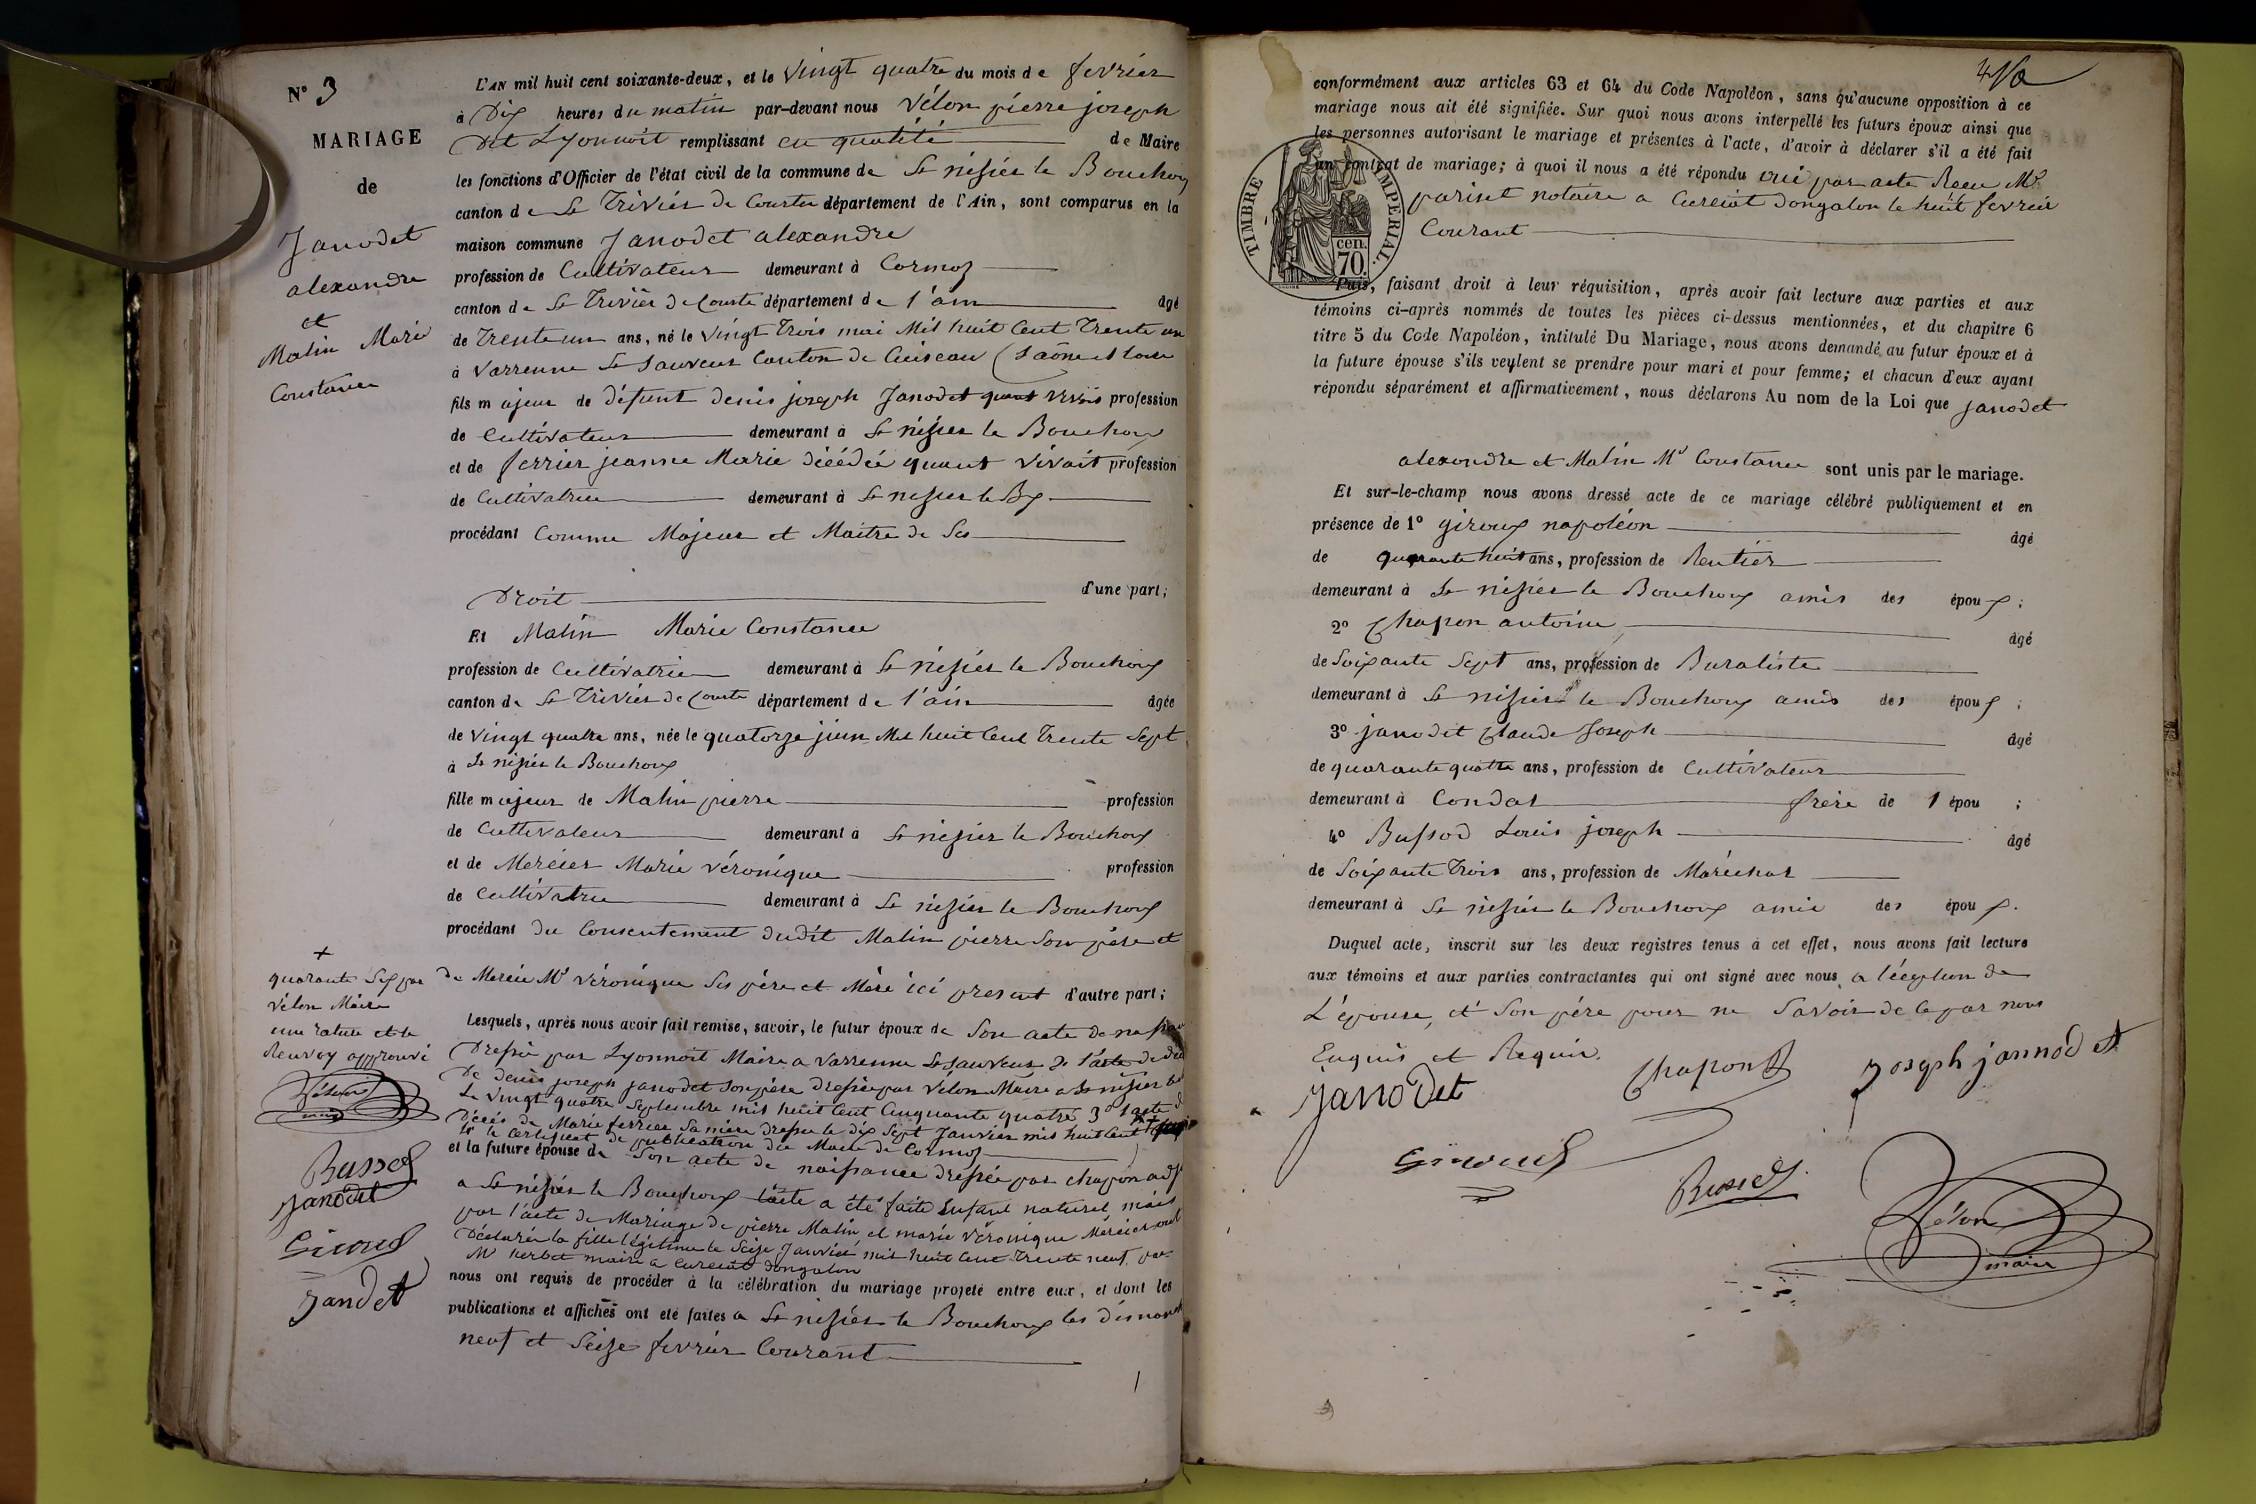 N° 3
MARIAGE
de
Janodet
alexandre
et
Malin Marie
Constance
L'AN mil huit cent soixante-deux, et le vingt quatre du mois de fevrier
à Dix heures du matin par-devant nous Vélon pierre joseph
Dit Lyonnoit remplissant en qualité de Maire
les fonctions d'Officier de l'état civil de la commune de St nisiér le Bouchoux
canton de St Triviér de Courte département de l'Ain, sont comparus en la
maison commune Janodet alexandre
profession de Cultivateur demeurant à Cormoz
canton de St Triviér de Courte département de l'ain âgé
de Trente un ans, né le vingt Trois mai Mil huit Cent Trente un
à Varrenne St Sauveur Canton de Cuiseau (Saône et Loire
fils majeur de défunt denis joseph Janodet quant vivais profession
de Cultivateur demeurant à St nisier le Bouchoux
et de ferrier jeanne Marie décédée quant vivait profession
de Cultivatrice demeurant à St nisier le Bx
procédant Comme Majeur et Maitre de Ses
Droit d'une part;
Et Malin Marie Constance
profession de Cultivatrice demeurant à St nisiér le Bouchoux
canton de St Triviér de Courte département de l'ain âgée
de vingt quatre ans, née le quatorze juin Mil huit Cent Trente Sept
à St nisier le Bouchoux
fille majeur de Malin pierre profession
de Cultivateur demeurant à St nisier le Bouchoux
et de Mercier Marie véronique profession
de Cultivatrice demeurant à St nisier le Bouchoux
procédant du Consentement dudit Malin pierre Son père et
de Mercier Mie véronique Ses père et Mère ici present d'autre part;
Lesquels, après nous avoir fait remise, savoir, le futur époux de Son acte de
Dressé par Lyonnoit Maire a Varrenne St Sauveur 2° l'acte de
De denis joseph janodet Son père dressé par Vélon Maire a St nisier
Le vingt quatre Septembre mil huit Cent Cinquante quatre 3° l'acte
Décés de Marie ferrier Sa mère dressé le dix Sept Janvier mil huit Cent
le certificat de publication du Maire de Cormoz
et la future épouse de Son acte de naissance dressée par chapon adjt
a St nisiér le Bouchoux l'acte a été faite Enfant naturel mais
par l'acte de Mariage de pierre Malin et marie véronique Mercier
Déclarée la fille légitime le Seize Janvier mil huit Cent Trente neuf par
Mr maire a Cureiat dongalon
nous ont requis de procéder à la célébration du mariage projeté entre eux, et dont les
publications et affiches ont été faites a St nisiér le Bouchoux les
neuf et Seize fevrier Courant
+
quarante Sep par
Vélon Maire
une rature et le
Renvoy approuvé
Vélon
maire
Bussod
Janodet
Giroud
Jandet
4
conformément aux articles 63 et 64 du Code Napoléon, sans qu'aucune opposition à ce
mariage nous ait été signifiée. Sur quoi nous avons interpellé les futurs époux ainsi que
les personnes autorisant le mariage et présentes à l'acte, d'avoir à déclarer s'il a été fait
un contrat de mariage; à quoi il nous a été répondu oui par acte Recu Me
parisot notaire a Cureiat dongalon le huit fevrier
Courant
TIMBRE IMPERIAL.
70. cen.
Puis, faisant droit à leur réquisition, après avoir fait lecture aux parties et aux
témoins ci-après nommés de toutes les pièces ci-dessus mentionnées, et du chapitre 6
titre 5 du Code Napoléon, intitulé Du Mariage, nous avons demandé au futur époux et à
la future épouse s'ils veulent se prendre pour mari et pour femme; et chacun d'eux ayant
répondu séparément et affirmativement, nous déclarons Au nom de la Loi que Janodet
alexandre et Malin Mie Constance sont unis par le mariage.
Et sur-le-champ nous avons dressé acte de ce mariage célébré publiquement et en
présence de 1° giroux napoléon âgé
de quarante huit ans, profession de Rentier
demeurant à St nisiér le Bouchoux amis des époux;
2° Chapon antoine âgé
de Soixante Sept ans, profession de Buraliste
demeurant à St nisiér le Bouchoux amis des époux;
3° janodet Claude Joseph âgé
de quarante quatre ans, profession de Cultivateur
demeurant à Condat frère de l épou;
4° Bussod Louis joseph âgé
de Soixante Trois ans, profession de Maréchal
demeurant à St nisiér le Bouchoux amie des époux.
Duquel acte, inscrit sur les deux registres tenus à cet effet, nous avons fait lecture
aux témoins et aux parties contractantes qui ont signé avec nous a l'éception de
L'épouse, et Son père pour ne Savoir de ce par nous
Enquis et Requis.
Janodet
Chapon
Joseph jannodet
Giroud
Bussod
Vélon
maire